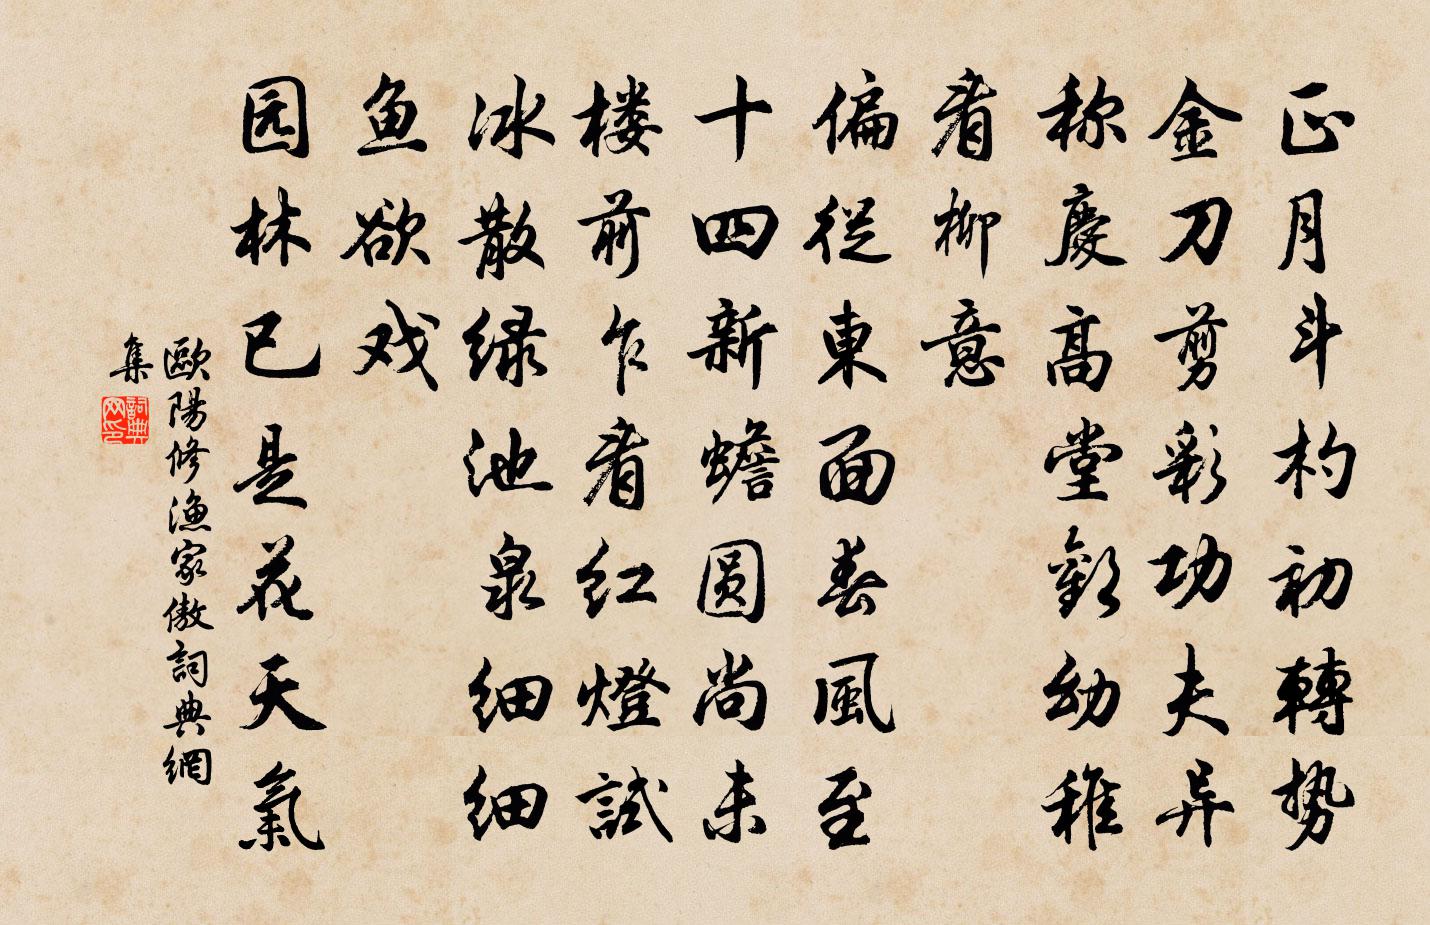 正月斗杓初轉势
金刀剪彩功夫异
称慶高堂歡幼稚
看柳意
偏從東面春風至
十四新蟾圆尚未
楼前乍看红燈試
冰散绿池泉细细
鱼欲戏
园林已是花天氣
歐陽修漁家傲詞典網
集
詞典
网印